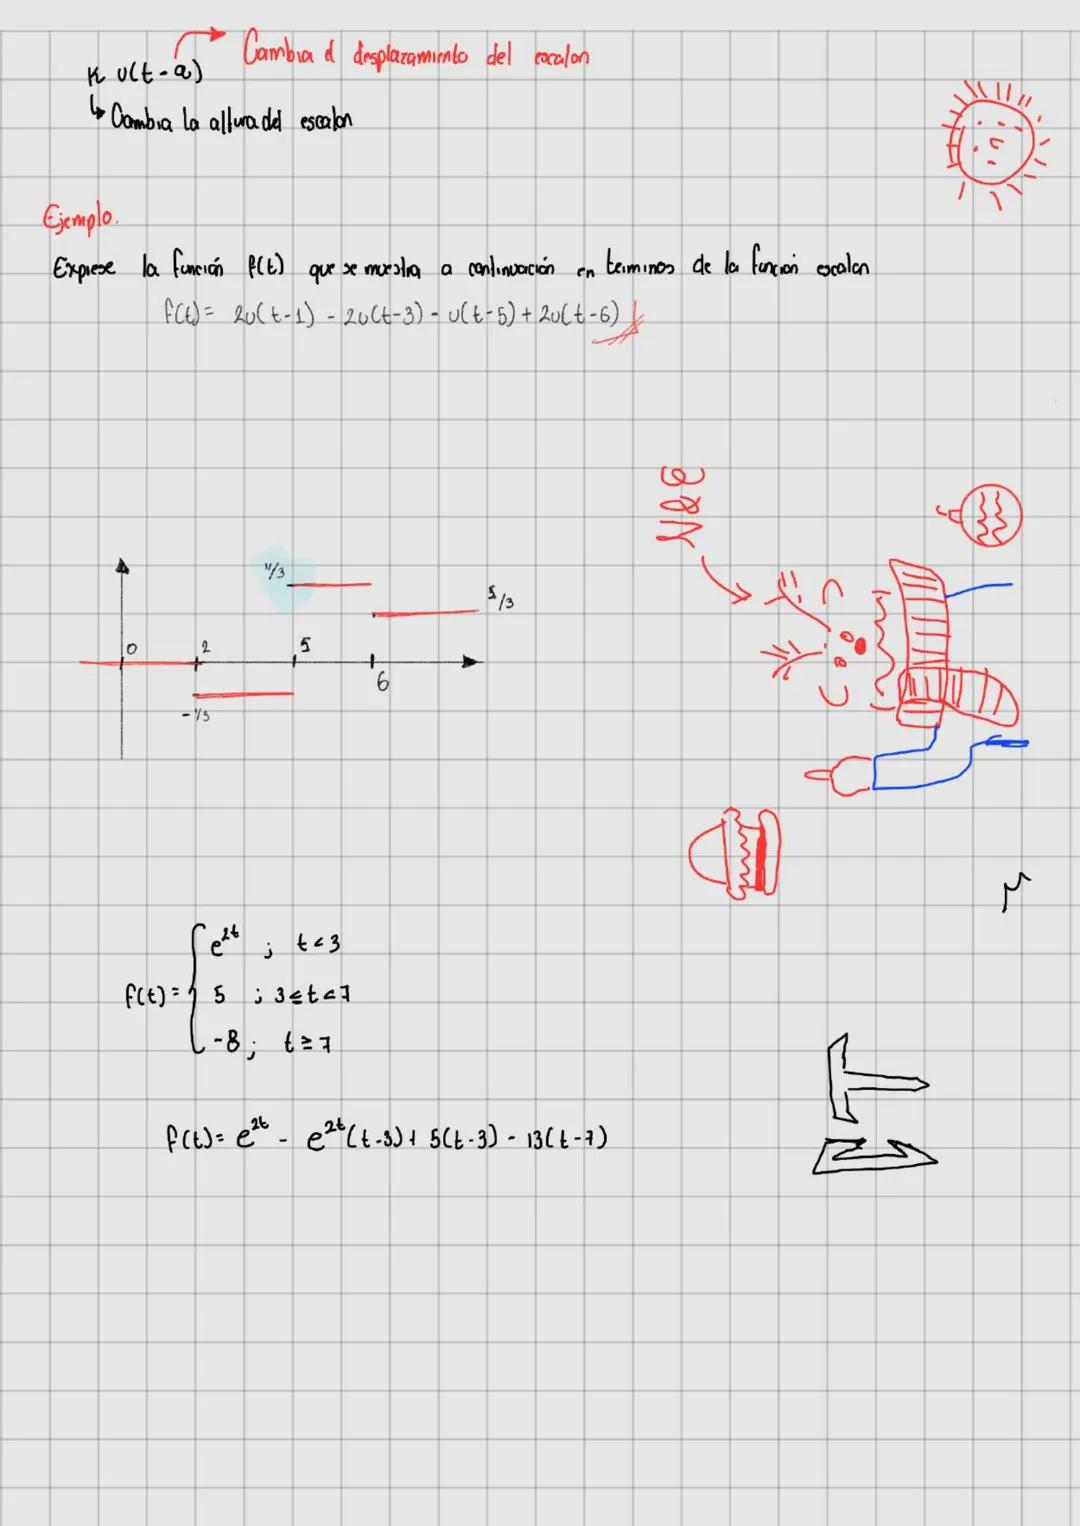 Cambia el desplazamiento del escalon
K u(t-a)
Cambia la altura del escalon
Ejemplo.
Exprese la función f(t) que se muestra a continuación en terminos de la función escalon
f(t)= 2u(t-1) - 2u(t-3) - u(t-5) + 2u(t-6)
11/3
5/3
0 2 5
6
-1/3
f(t)= { e^2t ; t<3
5 ; 3≤t<7
-8; t≥7
f(t)= e^2t - e^2t(t-3)+ 5(t-3) - 13(t-7)